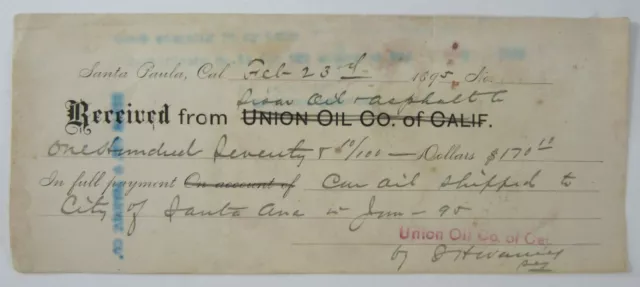 Santa Paula, Cal Feb 23rd 1895 No.
Oil & Asphalt Co
Received from UNION OIL CO. of CALIF.
One Hundred Seventy & 10/100 — Dollars $170 10
In full payment On account of Car oil shipped to
City of Santa Ana in Jan - 95
Union Oil Co. of Cal
by